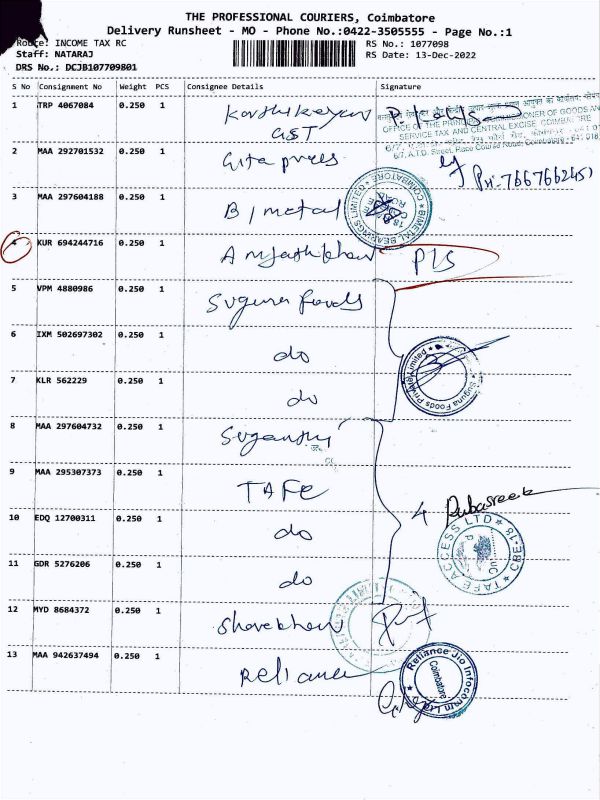 THE PROFESSIONAL COURIERS, Coimbatore
Delivery Runsheet - MO - Phone No.:0422-3505555 - Page No.:1
Route: INCOME TAX RC
RS No.: 1077098
Staff: NATARAJ
RS Date: 13-Dec-2022
DRS No.: DCJB107709801
S No Consignment No Weight PCS Consignee Details Signature
1 TRP 4067084 0.250 1 Karthikeyan
GST
OFFICE OF THE PRINCIPAL COMMISSIONER OF GOODS AND
SERVICE TAX AND CENTRAL EXCISE, COIMBATORE
6/7, A.T.D. Street, Race Course Road, Coimbatore - 641 018
2 MAA 292701532 0.250 1 Gita press
3 MAA 297604188 0.250 1 Bimetal
BIMETAL BEARINGS LIMITED COIMBATORE
4 KUR 694244716 0.250 1
5 VPM 4880986 0.250 1 Suguna foods
6 IXM 502697302 0.250 1 do
Suguna Foods Private Limited
7 KLR 562229 0.250 1 do
8 MAA 297604732 0.250 1
9 MAA 295307373 0.250 1 TAFE
4
10 EDQ 12700311 0.250 1 do
TAFE ACCESS LTD CBE-18
11 GDR 5276206 0.250 1 do
12 MYD 8684372 0.250 1
13 MAA 942637494 0.250 1 Reliance
Reliance Jio Infocomm Ltd
Coimbatore